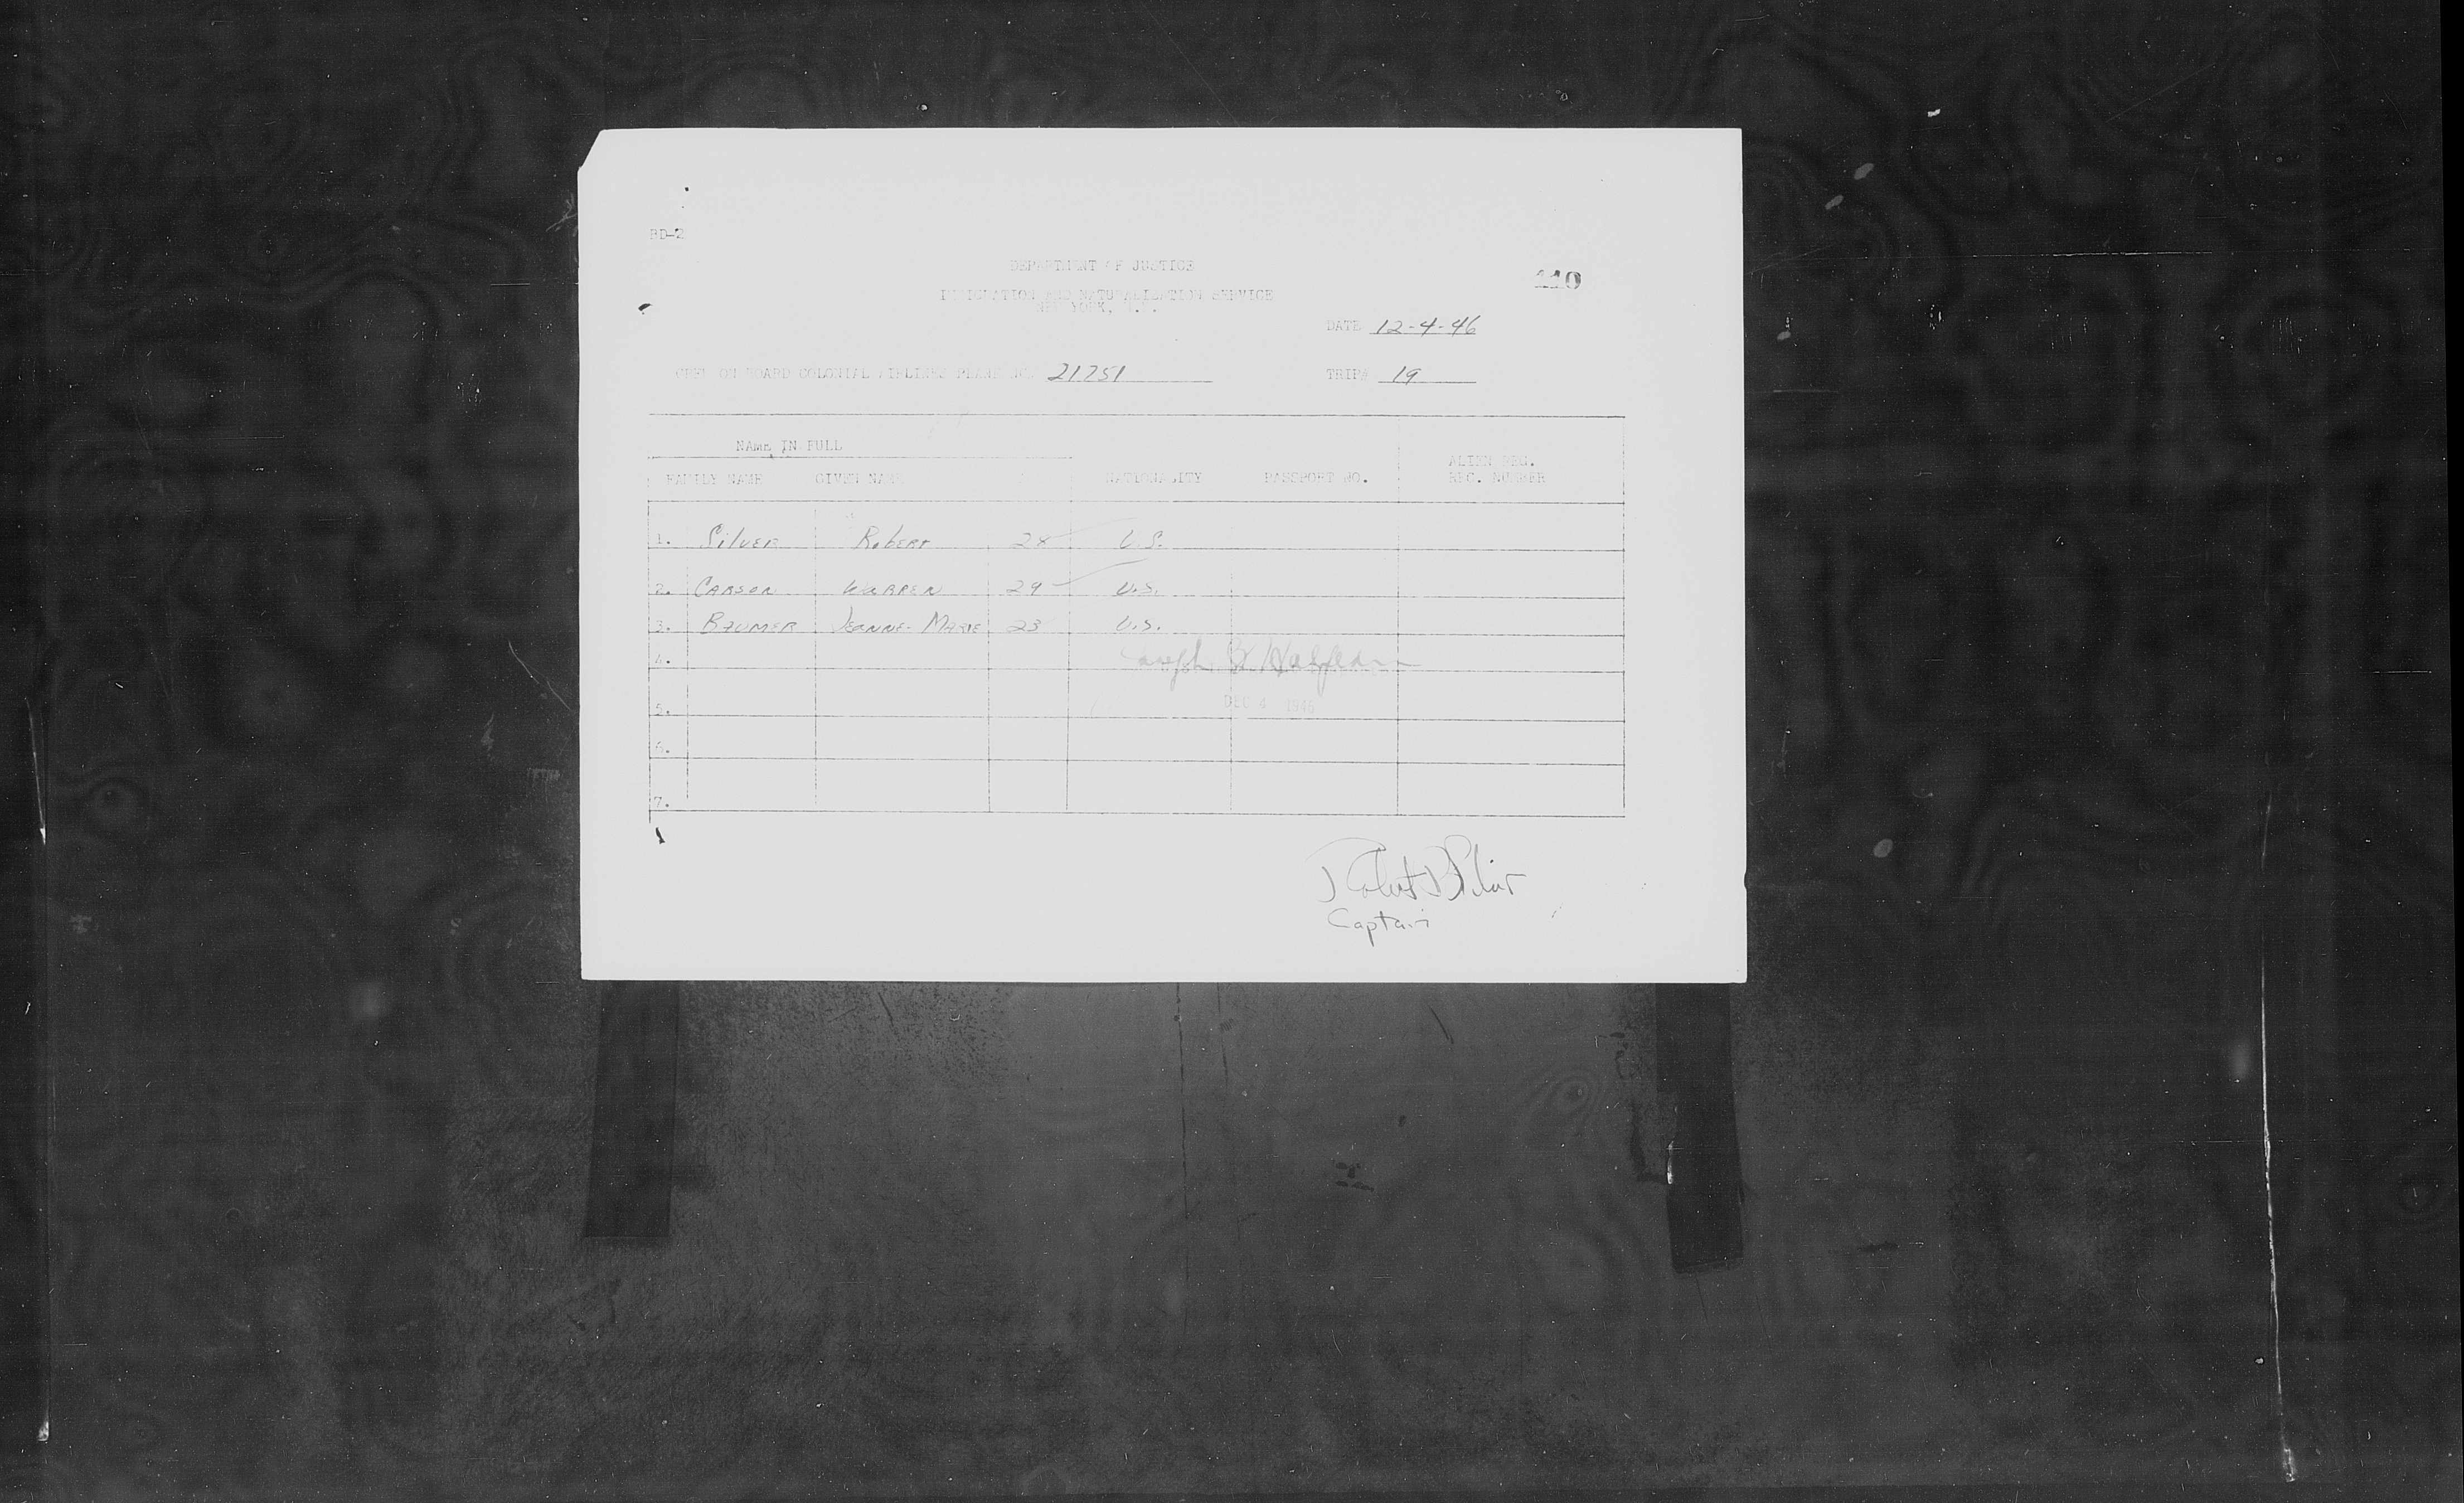 BD-2
DEPARTMENT OF JUSTICE
110
IMMIGRATION AND NATURALIZATION SERVICE
NEW YORK, N.Y.
DATE 12-4-46
CREW ON BOARD COLONIAL AIRLINES PLANE NO. 21751
TRIP# 19
NAME IN FULL
FAMILY NAME GIVEN NAME NATIONALITY PASSPORT NO. ALIEN REG. REC. NUMBER
1. Silver Robert 28 U.S.
2. CARSON WARREN 29 U.S.
3. BAUMER JEANNE-MARIE 23 U.S.
4. Joseph
5. DEC 4 1946
6.
7.
Robert Silver
Captain